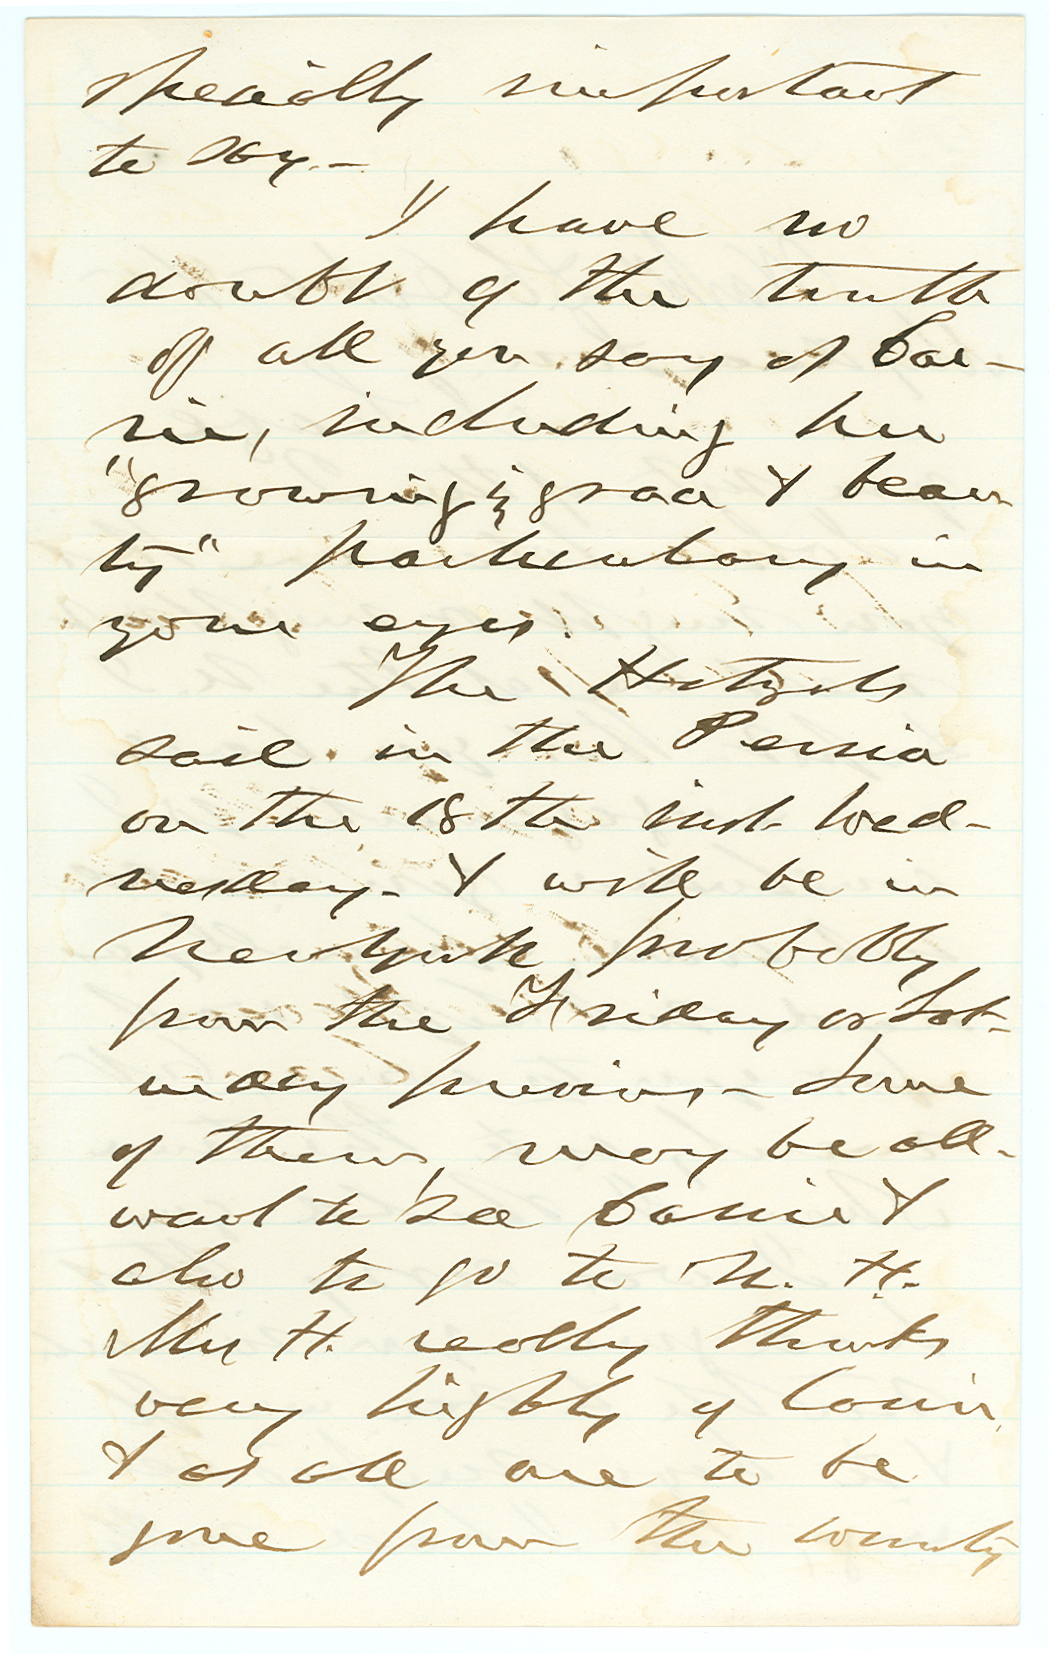 specially important
to say.—
I have no
doubt of the truth
of all you say of Cas-
sie, including her
"growing grace & beau-
ty" particularly in
your eyes.
The Hetzels
sail in the Persia
on the 18th inst. Wed-
nesday— I will be in
New York probably
from the Friday or Sat-
urday previous— Some
of them, may be all—
want to see Cassie &
also to go to N. H.
Mrs H. really thinks
very highly of Cassie,
& as all are to be
gone from the country